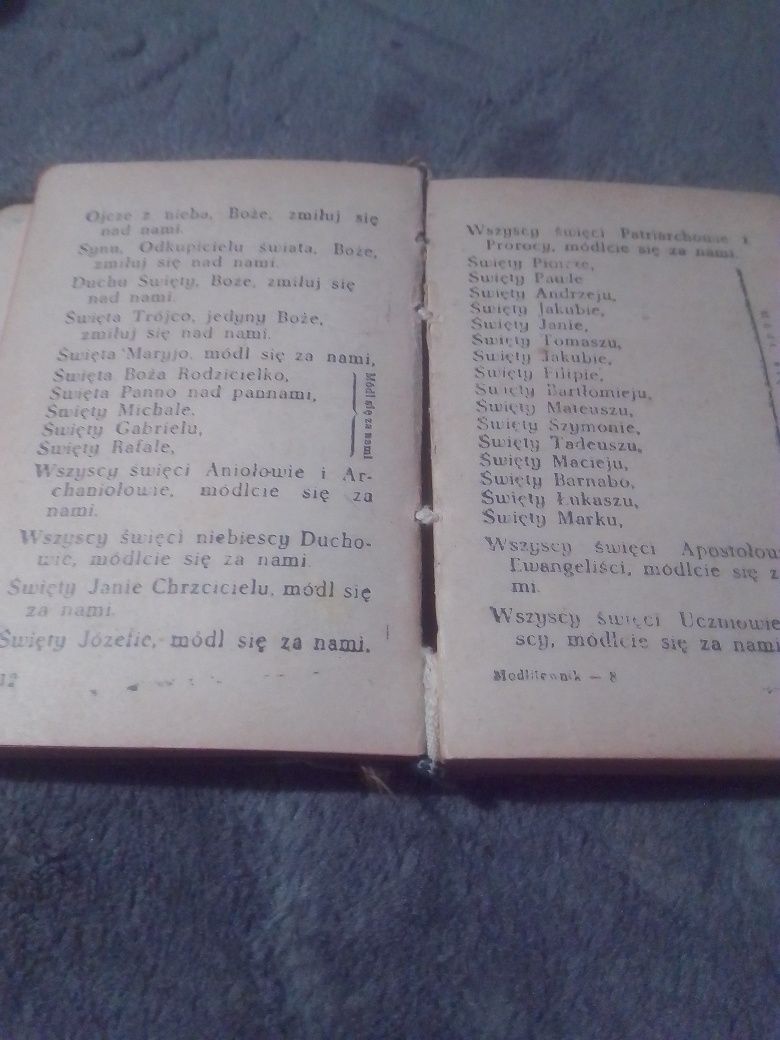 Ojcze z nieba, Boże, zmiłuj się
nad nami.
Synu, Odkupicielu świata, Boże,
zmiłuj się nad nami.
Duchu Święty, Boże, zmiłuj się
nad nami.
Święta Trójco, jedyny Boże,
zmiłuj się nad nami.
Święta Maryjo, módl się za nami,
Święta Boża Rodzicielko,
Święta Panno nad pannami,
Święty Michale,
Święty Gabrielu,
Święty Rafale,
Módl się za nami
Wszyscy święci Aniołowie i Ar-
chaniołowie, módlcie się za
nami.
Wszyscy święci niebiescy Ducho-
wie, módlcie się za nami.
Święty Janie Chrzcicielu, módl się
za nami.
Święty Józefie, módl się za nami.
12
Wszyscy święci Patriarchowie i
Prorocy, módlcie się za nami.
Święty Piotrze,
Święty Pawle
Święty Andrzeju,
Święty Jakubie,
Święty Janie,
Święty Tomaszu,
Święty Jakubie,
Święty Filipie,
Święty Bartłomieju,
Święty Mateuszu,
Święty Szymonie,
Święty Tadeuszu,
Święty Macieju,
Święty Barnabo,
Święty Łukaszu,
Święty Marku,
Wszyscy święci Apostołow
Ewangeliści, módlcie się z
mi.
Wszyscy święci Uczniowie
scy, módlcie się za nami
Modlitewnik — 8